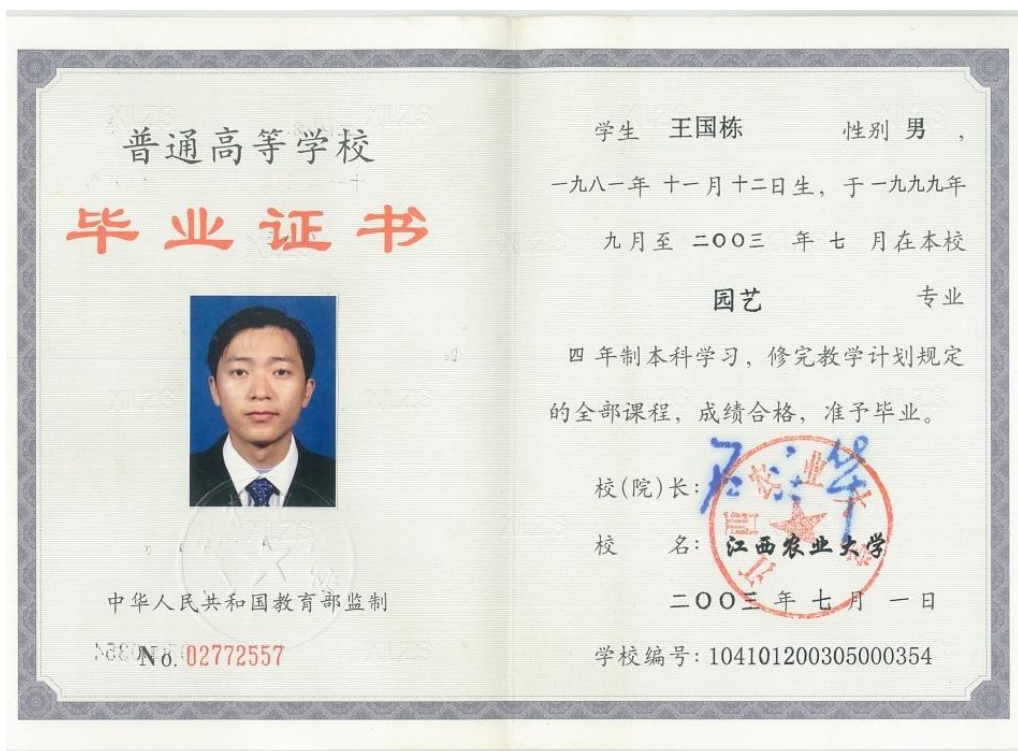 普通高等学校
毕业证书
中华人民共和国教育部监制
No. 02772557
学生 王国栋 性别 男 ,
一九八一年 十一月十二日生, 于一九九九年
九月至 二〇〇三 年 七 月在本校
园艺 专业
四 年制本科学习, 修完教学计划规定
的全部课程, 成绩合格, 准予毕业。
校(院)长:
校 名: 江西农业大学
二〇〇三 年 七 月 一 日
学校编号: 104101200305000354
江西农业大学
XLZS